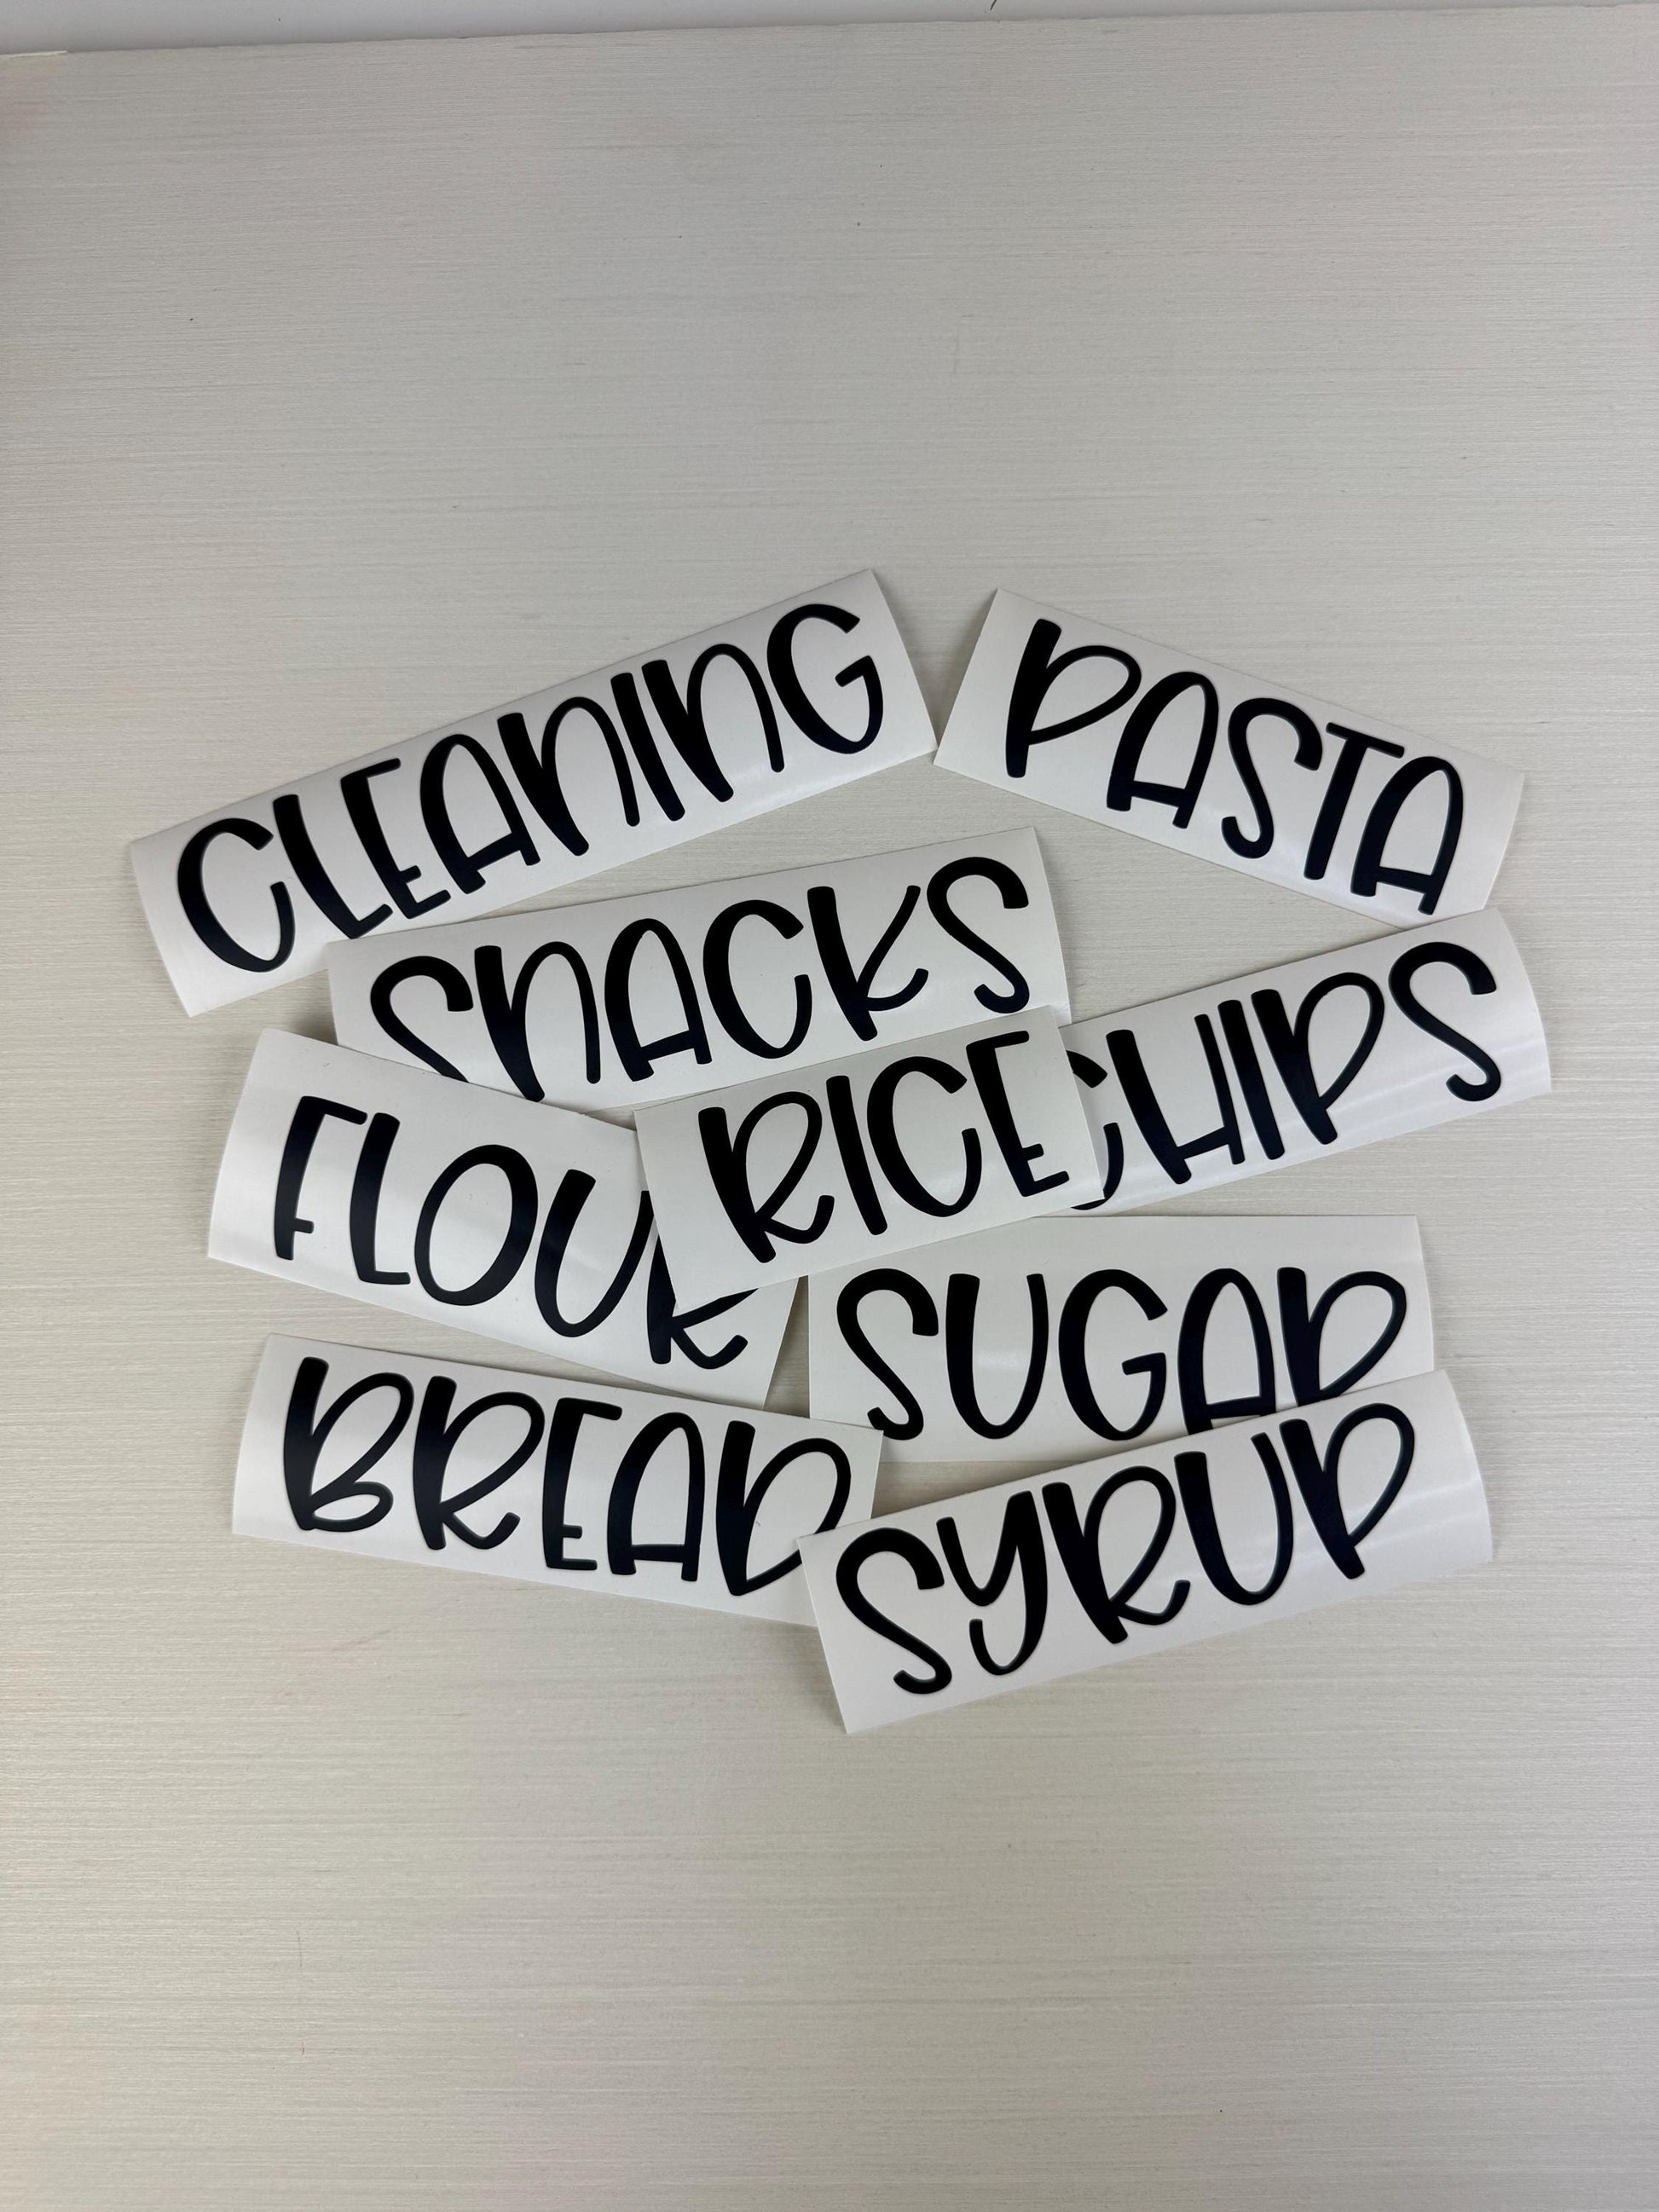 CLEANING
PASTA
SNACKS
CHIPS
RICE
FLOUR
SUGAR
BREAD
SYRUP